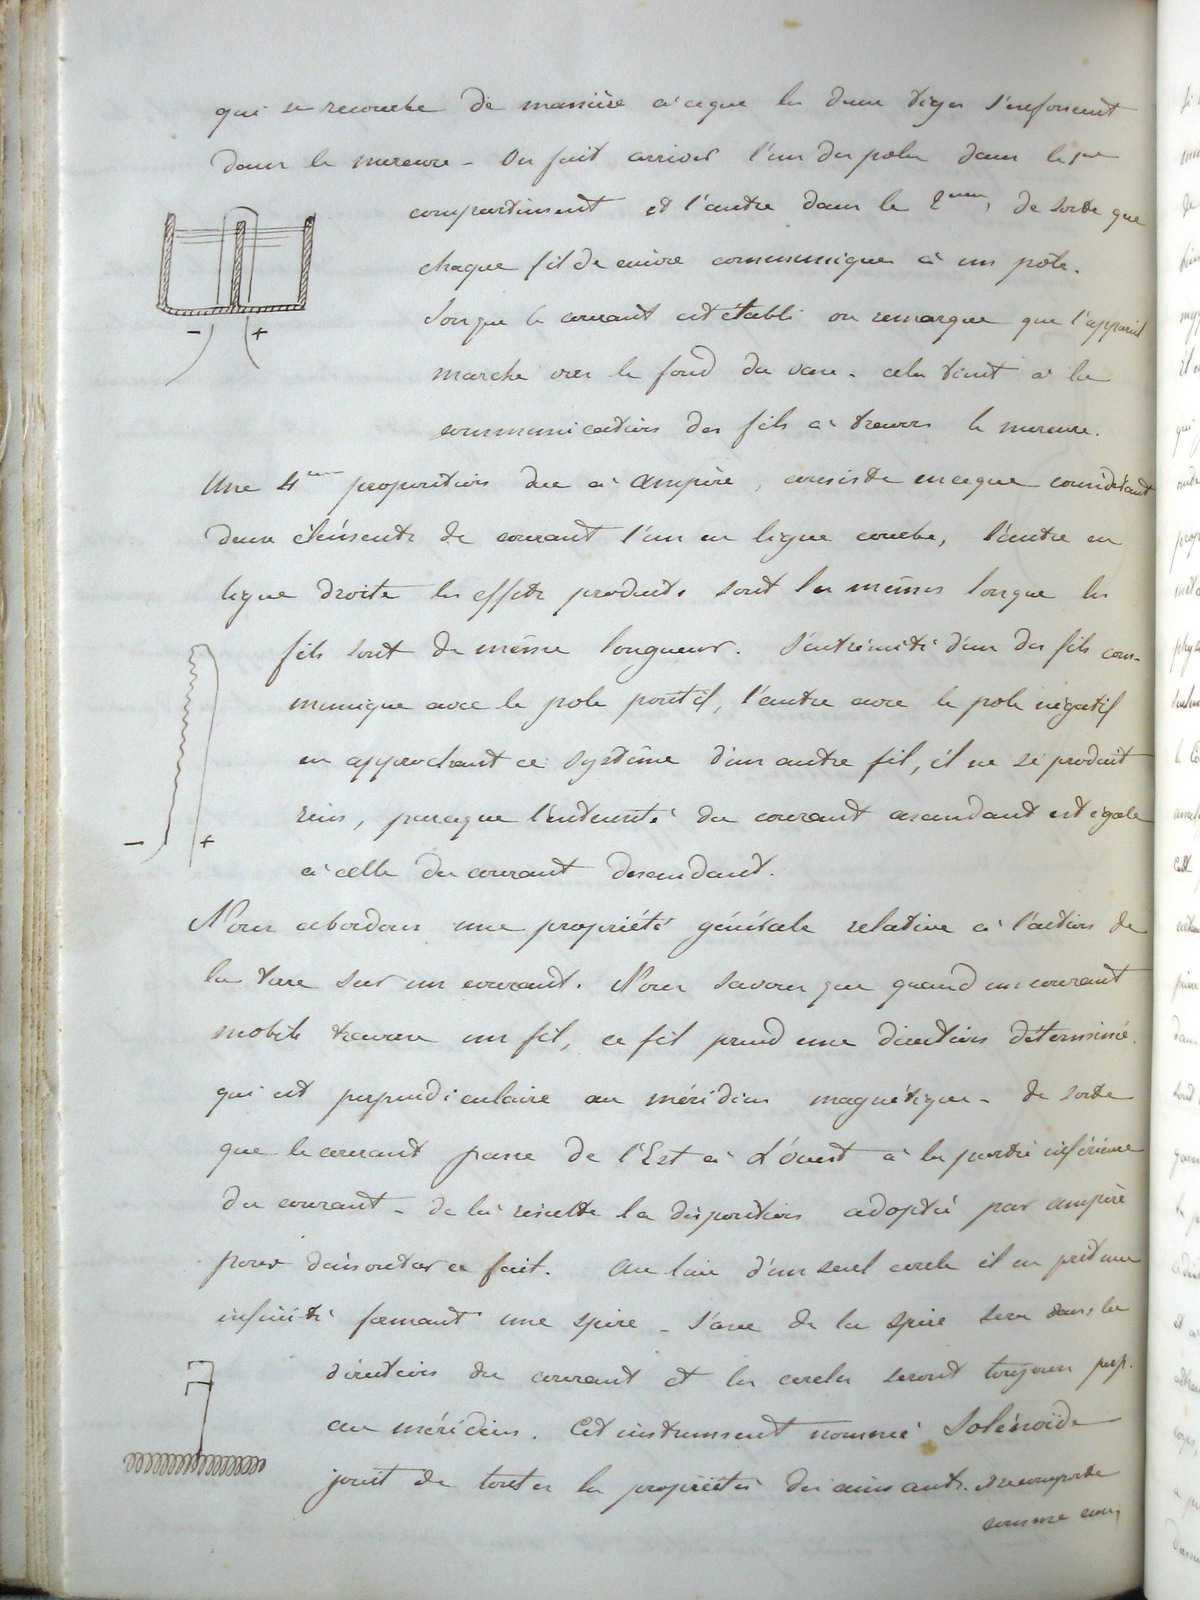 qui se recourbe de manière à ce que les deux tiges s'enfoncent
dans le mercure - On fait arriver l'un des poles dans le 1er
compartiment et l'autre dans le 2eme, de sorte que
chaque fil de cuivre communique à un pole.
Lorsque le courant est établi on remarque que l'appareil
marche vers le fond du vase - cela tient à la
communication des fils à travers le mercure.
Une 4eme proposition due à Ampère, consiste en ce que considérant
deux éléments de courant l'un en ligne courbe, l'autre en
ligne droite les effets produits sont les mêmes lorsque les
fils sont de même longueur. L'extrémité d'un des fils com-
munique avec le pole positif, l'autre avec le pole négatif
en approchant ce système d'un autre fil, il ne se produit
rien, parceque l'intensité du courant ascendant est égale
à celle du courant descendant.
- +
Nous abordons une propriété générale relative à l'action de
la terre sur un courant. Nous savons que quand un courant
mobile traverse un fil, ce fil prend une direction déterminé
qui est perpendiculaire au méridien magnétique - de sorte
que le courant passe de l'Est à L'ouest à la partie inférieure
du courant - de là résulte la disposition adoptée par ampère
pour démontrer ce fait. Au lieu d'un seul cercle il en prit une
infinité formant une spire - L'axe de la spire sera dans la
direction du courant et les cercles seront toujours perp.
au méridien. Cet instrument nommé Solénoïde
jouit de toutes les propriétés des aimants. Il se comporte
comme eux,